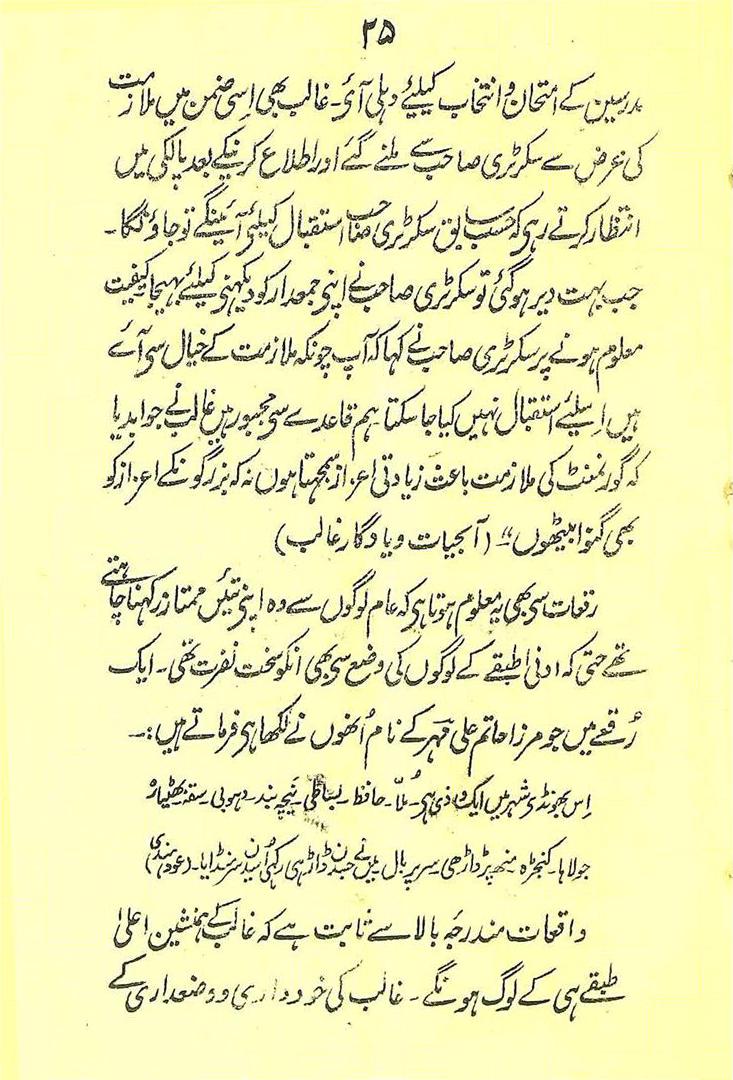 ۲۵
مدرسین کے امتحان و انتخاب کیلیئے دہلی آئ۔ غالب بھی اِسی ضمن میں ملازمت
کی غرض سے سکرٹری صاحب سے ملنے گئے اور اطلاع کرنیکے بعد پالکی میں
انتظار کرتے رہی کہ حسب سابق سکرٹری صاحب استقبال کیلئی آئینگے تو جاؤنگا۔
جب بہت دیر ہوگئی تو سکرٹری صاحب نے اپنی جمعدار کو دیکہنی کیلئے بہیجا کیفیت
معلوم ہونے پر سکرٹری صاحب نے کہا کہ آپ چونکہ ملازمت کے خیال سی آئے
ہیں اِسلیئے استقبال نہیں کیا جا سکتا ہم قاعدے سی مجبور ہیں غالب نے جوابدیا
کہ گورنمنٹ کی ملازمت باعث زیادتی اعزاز سمجہتا ہوں نہ کہ بزرگونکے اعزاز کو
بھی گنوا بیٹھوں“ (آبحیات و یادگار غالب)
رقعات سی بھی یہ معلوم ہوتا ہی کہ عام لوگوں سے وہ اپنی تئیں ممتاز رکہنا چاہتے
تھے حتی کہ ادنیٰ طبقے کے لوگوں کی وضع سی بھی انکو سخت نفرت تھی۔ ایک
رُقعے میں جو مرزا حاتم علی مہر کے نام اُنھوں نے لکھا ہی فرماتے ہیں:۔
اِس بھونڈی شہر میں ایک وردی ہی۔ مُلّا۔ حافظ۔ بساطی۔ نیچہ بند۔ دہوبی۔ سقہ۔ بھٹیارہ
جولاہا۔ کنجڑہ منھ پر ڈاڑھی سر پر بال میں نے جسدن ڈاڑہی رکہی اُسیدن سر منڈایا۔ (عود ہندی)
واقعات مندرجۂ بالا سے ثابت ہے کہ غالب کے ہمنشین اعلیٰ
طبقے ہی کے لوگ ہونگے۔ غالب کی خودداری و وضعداری کے